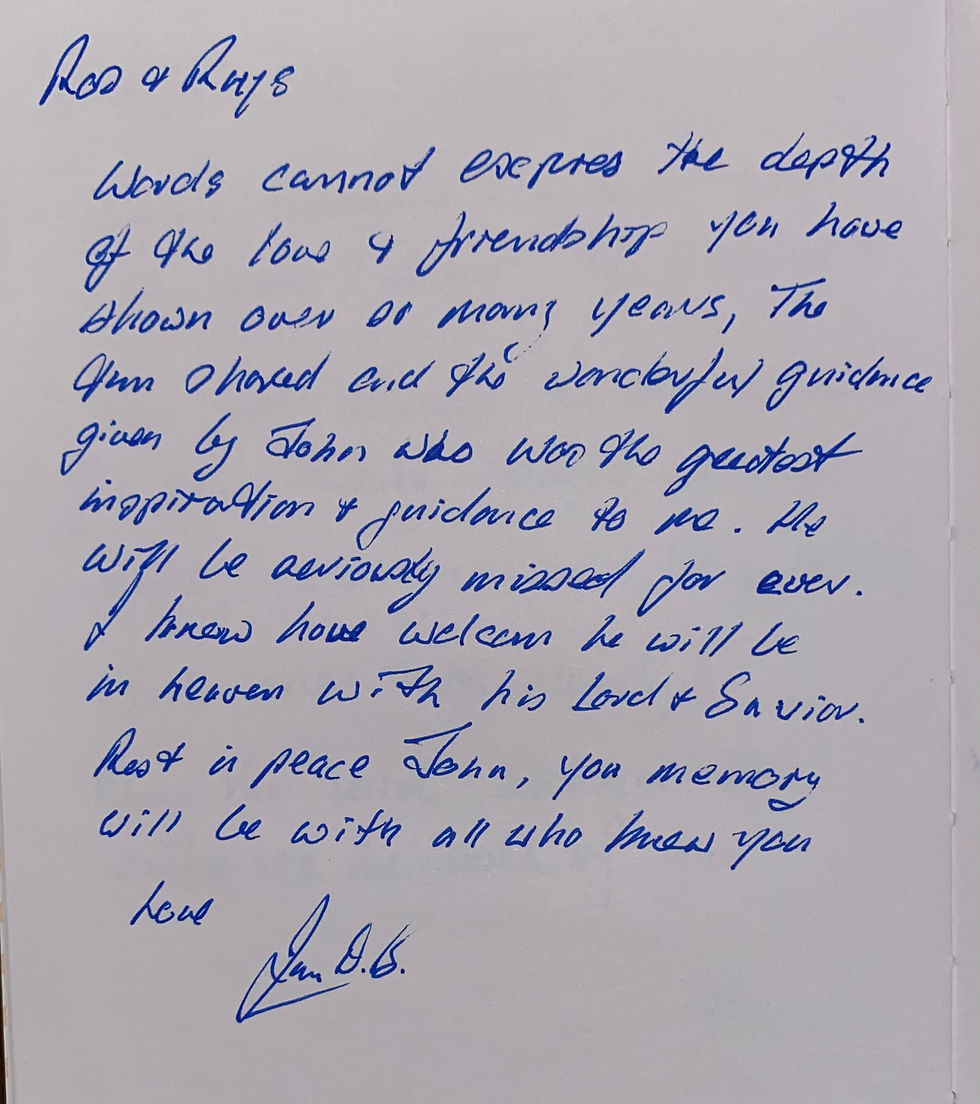 Ros & Rhys
Words cannot express the depth
of the love & friendship you have
shown over so many years, The
fun shared and the wonderful guidance
given by John who was the greatest
inspiration & guidance to me. He
will be seriously missed for ever.
I know how welcom he will be
in heaven with his Lord & Savior.
Rest in peace John, you memory
will be with all who knew you
Love
D.B.